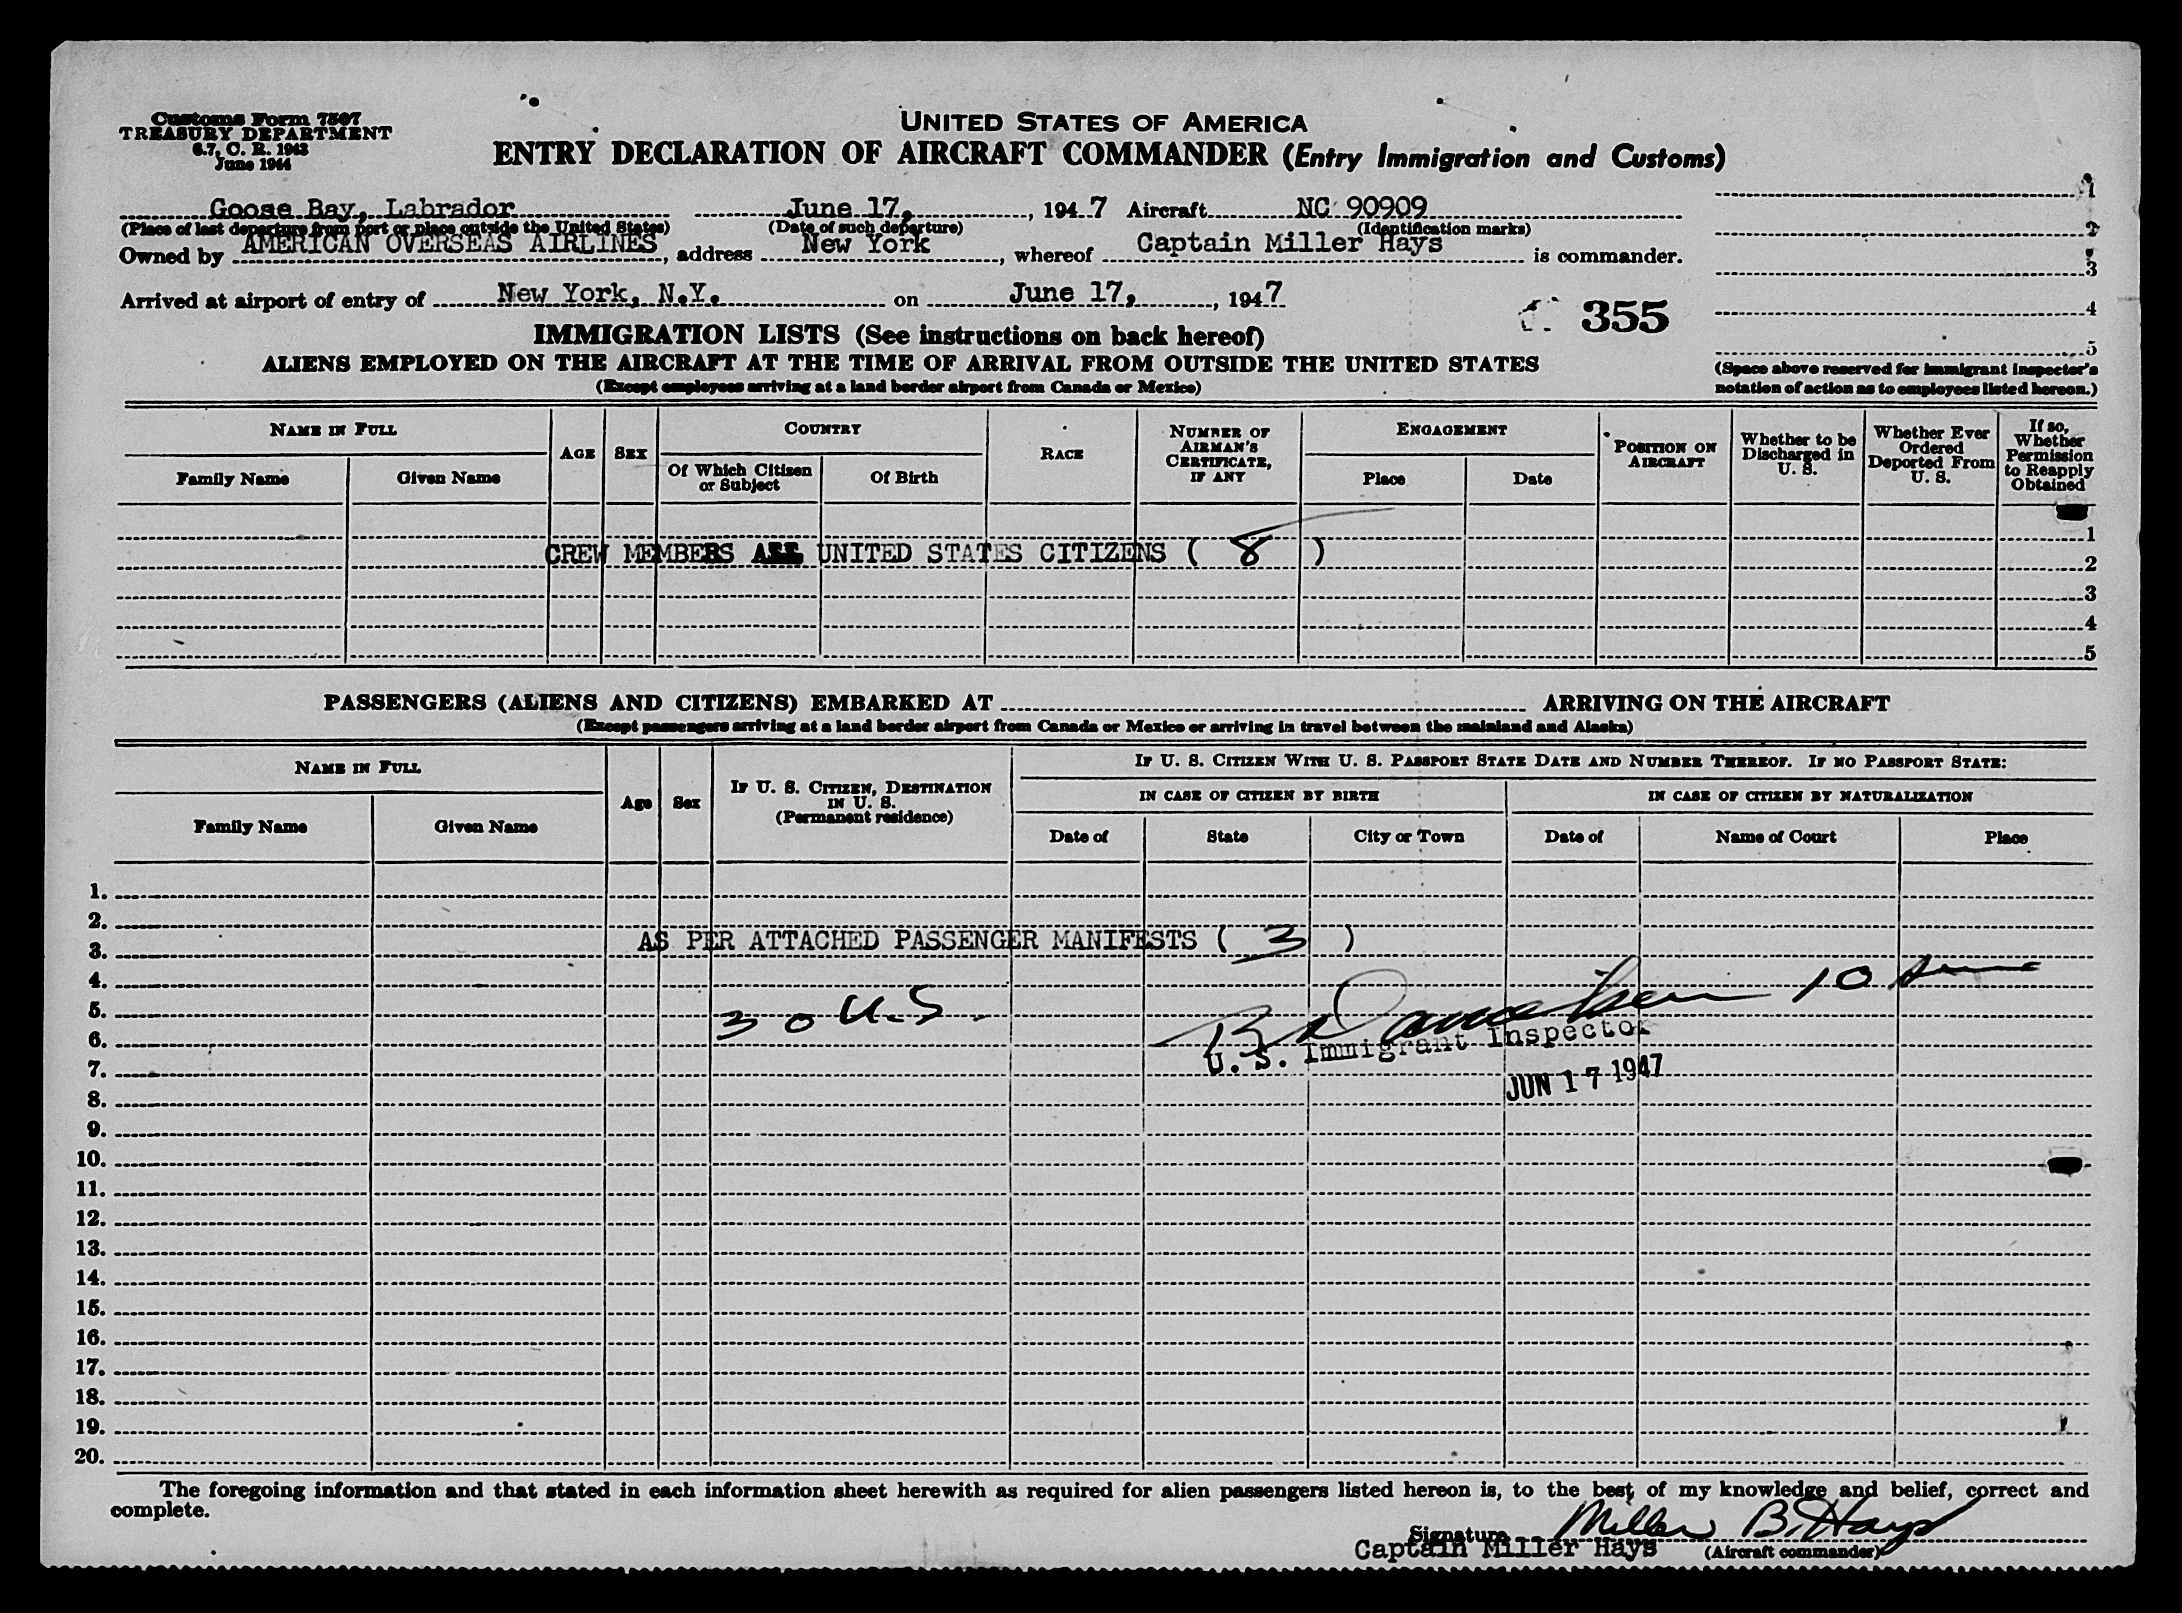 Customs Form 7507
TREASURY DEPARTMENT
6.7, C. R. 1943
June 1944
UNITED STATES OF AMERICA
ENTRY DECLARATION OF AIRCRAFT COMMANDER (Entry Immigration and Customs)
Goose Bay, Labrador June 17, , 1947 Aircraft NC 90909
(Place of last departure from port or place outside the United States) (Date of such departure) (Identification marks)
Owned by AMERICAN OVERSEAS AIRLINES, address New York, whereof Captain Miller Hays is commander.
Arrived at airport of entry of New York, N.Y. on June 17, , 1947
1
2
3
4
5
(Space above reserved for immigrant inspector's
notation of action as to employees listed hereon.)
355
IMMIGRATION LISTS (See instructions on back hereof)
ALIENS EMPLOYED ON THE AIRCRAFT AT THE TIME OF ARRIVAL FROM OUTSIDE THE UNITED STATES
(Except employees arriving at a land border airport from Canada or Mexico)
NAME IN FULL
Family Name Given Name
AGE SEX
COUNTRY
Of Which Citizen or Subject Of Birth
RACE
NUMBER OF AIRMAN'S CERTIFICATE, IF ANY
ENGAGEMENT
Place Date
POSITION ON AIRCRAFT
Whether to be Discharged in U. S.
Whether Ever Ordered Deported From U. S.
If so, Whether Permission to Reapply Obtained
1
CREW MEMBERS ALL UNITED STATES CITIZENS ( 8 )
2
3
4
5
PASSENGERS (ALIENS AND CITIZENS) EMBARKED AT ARRIVING ON THE AIRCRAFT
(Except passengers arriving at a land border airport from Canada or Mexico or arriving in travel between the mainland and Alaska)
NAME IN FULL
Family Name Given Name
Age Sex
IF U. S. CITIZEN, DESTINATION IN U. S.
(Permanent residence)
IF U. S. CITIZEN WITH U. S. PASSPORT STATE DATE AND NUMBER THEREOF. IF NO PASSPORT STATE:
IN CASE OF CITIZEN BY BIRTH IN CASE OF CITIZEN BY NATURALIZATION
Date of State City or Town Date of Name of Court Place
1.
2.
AS PER ATTACHED PASSENGER MANIFESTS ( 3 )
3.
4.
5. 30 U.S. 10
6.
U. S. Immigrant Inspector
7.
JUN 17 1947
8.
9.
10.
11.
12.
13.
14.
15.
16.
17.
18.
19.
20.
The foregoing information and that stated in each information sheet herewith as required for alien passengers listed hereon is, to the best of my knowledge and belief, correct and
complete.
Signature Miller B. Hays
Captain Miller Hays (Aircraft commander)